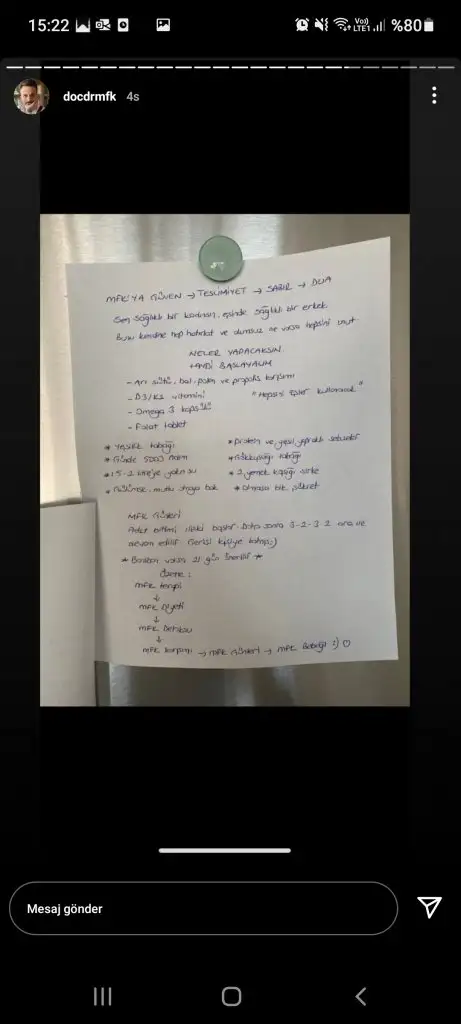 15:22
Vo)) LTE1 %80
docdrmfk 4s
MFK'YA GÜVEN → TESLİMİYET → SABIR → DUA
Sen sağlıklı bir kadınsın, eşinde sağlıklı bir erkek
Bunu kendine hep hatırlat ve olumsuz ne varsa hepsini unut
NELER YAPACAKSIN
HAYDİ BAŞLAYALIM
- Arı sütü, bal, polen ve propolis karışımı
- D3/K2 vitamini "Hepsini eşler kullanacak"
- Omega 3 kapsülü
- Folat tablet
* Yeşillik tabağı * Protein ve yeşil yapraklı sebzeler
* Günde 5000 Adım * Gökkuşağı tabağı
* 1.5-2 litreye yakın su * 2 yemek kaşığı sirke
* Gülümse, mutlu olmaya bak * Olmasa bile şükret
MFK Günleri
Adet bitimi ilişki başlar. Daha sonra 3-2-3-2 ara ile
devam edilir. Gerisi kişiye kalmış :)
* Bardan varsa 21. gün önerilir *
Özetle:
MFK terapi
↓
MFK Diyeti
↓
MFK Detoksu
↓
MFK karışımı → MFK Günleri → MFK Bebeği :) ♡
Mesaj gönder